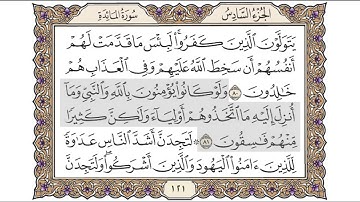 الجزء السادس سورة المائدة
يتولون الذين كفروا لبئس ما قدمت لهم
أنفسهم أن سخط الله عليهم وفي العذاب هم
خالدون ٨٠ ولو كانوا يؤمنون بالله والنبي وما
أنزل إليه ما اتخذوهم أولياء ولكن كثيرا
منهم فاسقون ٨١ لتجدن أشد الناس عداوة
للذين ءامنوا اليهود والذين أشركوا ولتجدن
١٢١